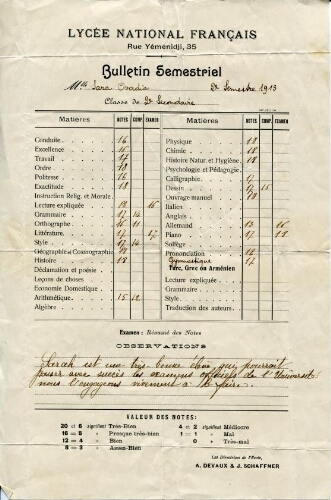 LYCÉE NATIONAL FRANÇAIS
Rue Yéménidji, 35
Bulletin Semestriel
Mlle Sara Ovadia 2d Semestre 1913
Classe de 2de Secondaire
Matières NOTES COMP. EXAMEN Matières NOTES COMP. EXAMEN
Conduite 16 Physique 18
Excellence 15 Chimie 18
Travail 17 Histoire Natur. et Hygiène. 18
Ordre 18 Psychologie et Pédagogie
Politesse 16 Calligraphie 17
Exactitude 18 Dessin 17 15
Instruction Relig. et Morale Ouvrage manuel 18
Lecture expliquée 18 16 Italien
Grammaire 17 14 Anglais
Orthographe 16 11 Allemand 13 16
Littérature 17 17 Piano 17 18
Style 17 14 Solfège
Géographie & Cosmographie 18 Prononciation
Histoire 18 Gymnastique 17
Déclamation et poésie Turc, Grec ou Arménien
Leçons de choses Lecture expliquée
Economie Domestique Grammaire
Arithmétique 15 12 Style
Algèbre Traduction des auteurs
Examen: Résumé des Notes
OBSERVATIONS
Sarah est une très bonne élève qui pourrait
passer avec succès les examens officiels de l'Université
nous l'engageons vivement à le faire.
VALEUR DES NOTES:
20 et 6 signifient Très-Bien 4 et 2 signifient Médiocre
16 = 5 » Presque très-bien 1 = 1 » Mal
12 = 4 » Bien 0 » Très-mal
8 = 3 » Assez-Bien
Les Directeurs de l'Ecole,
A. DEVAUX & J. SCHAFFNER